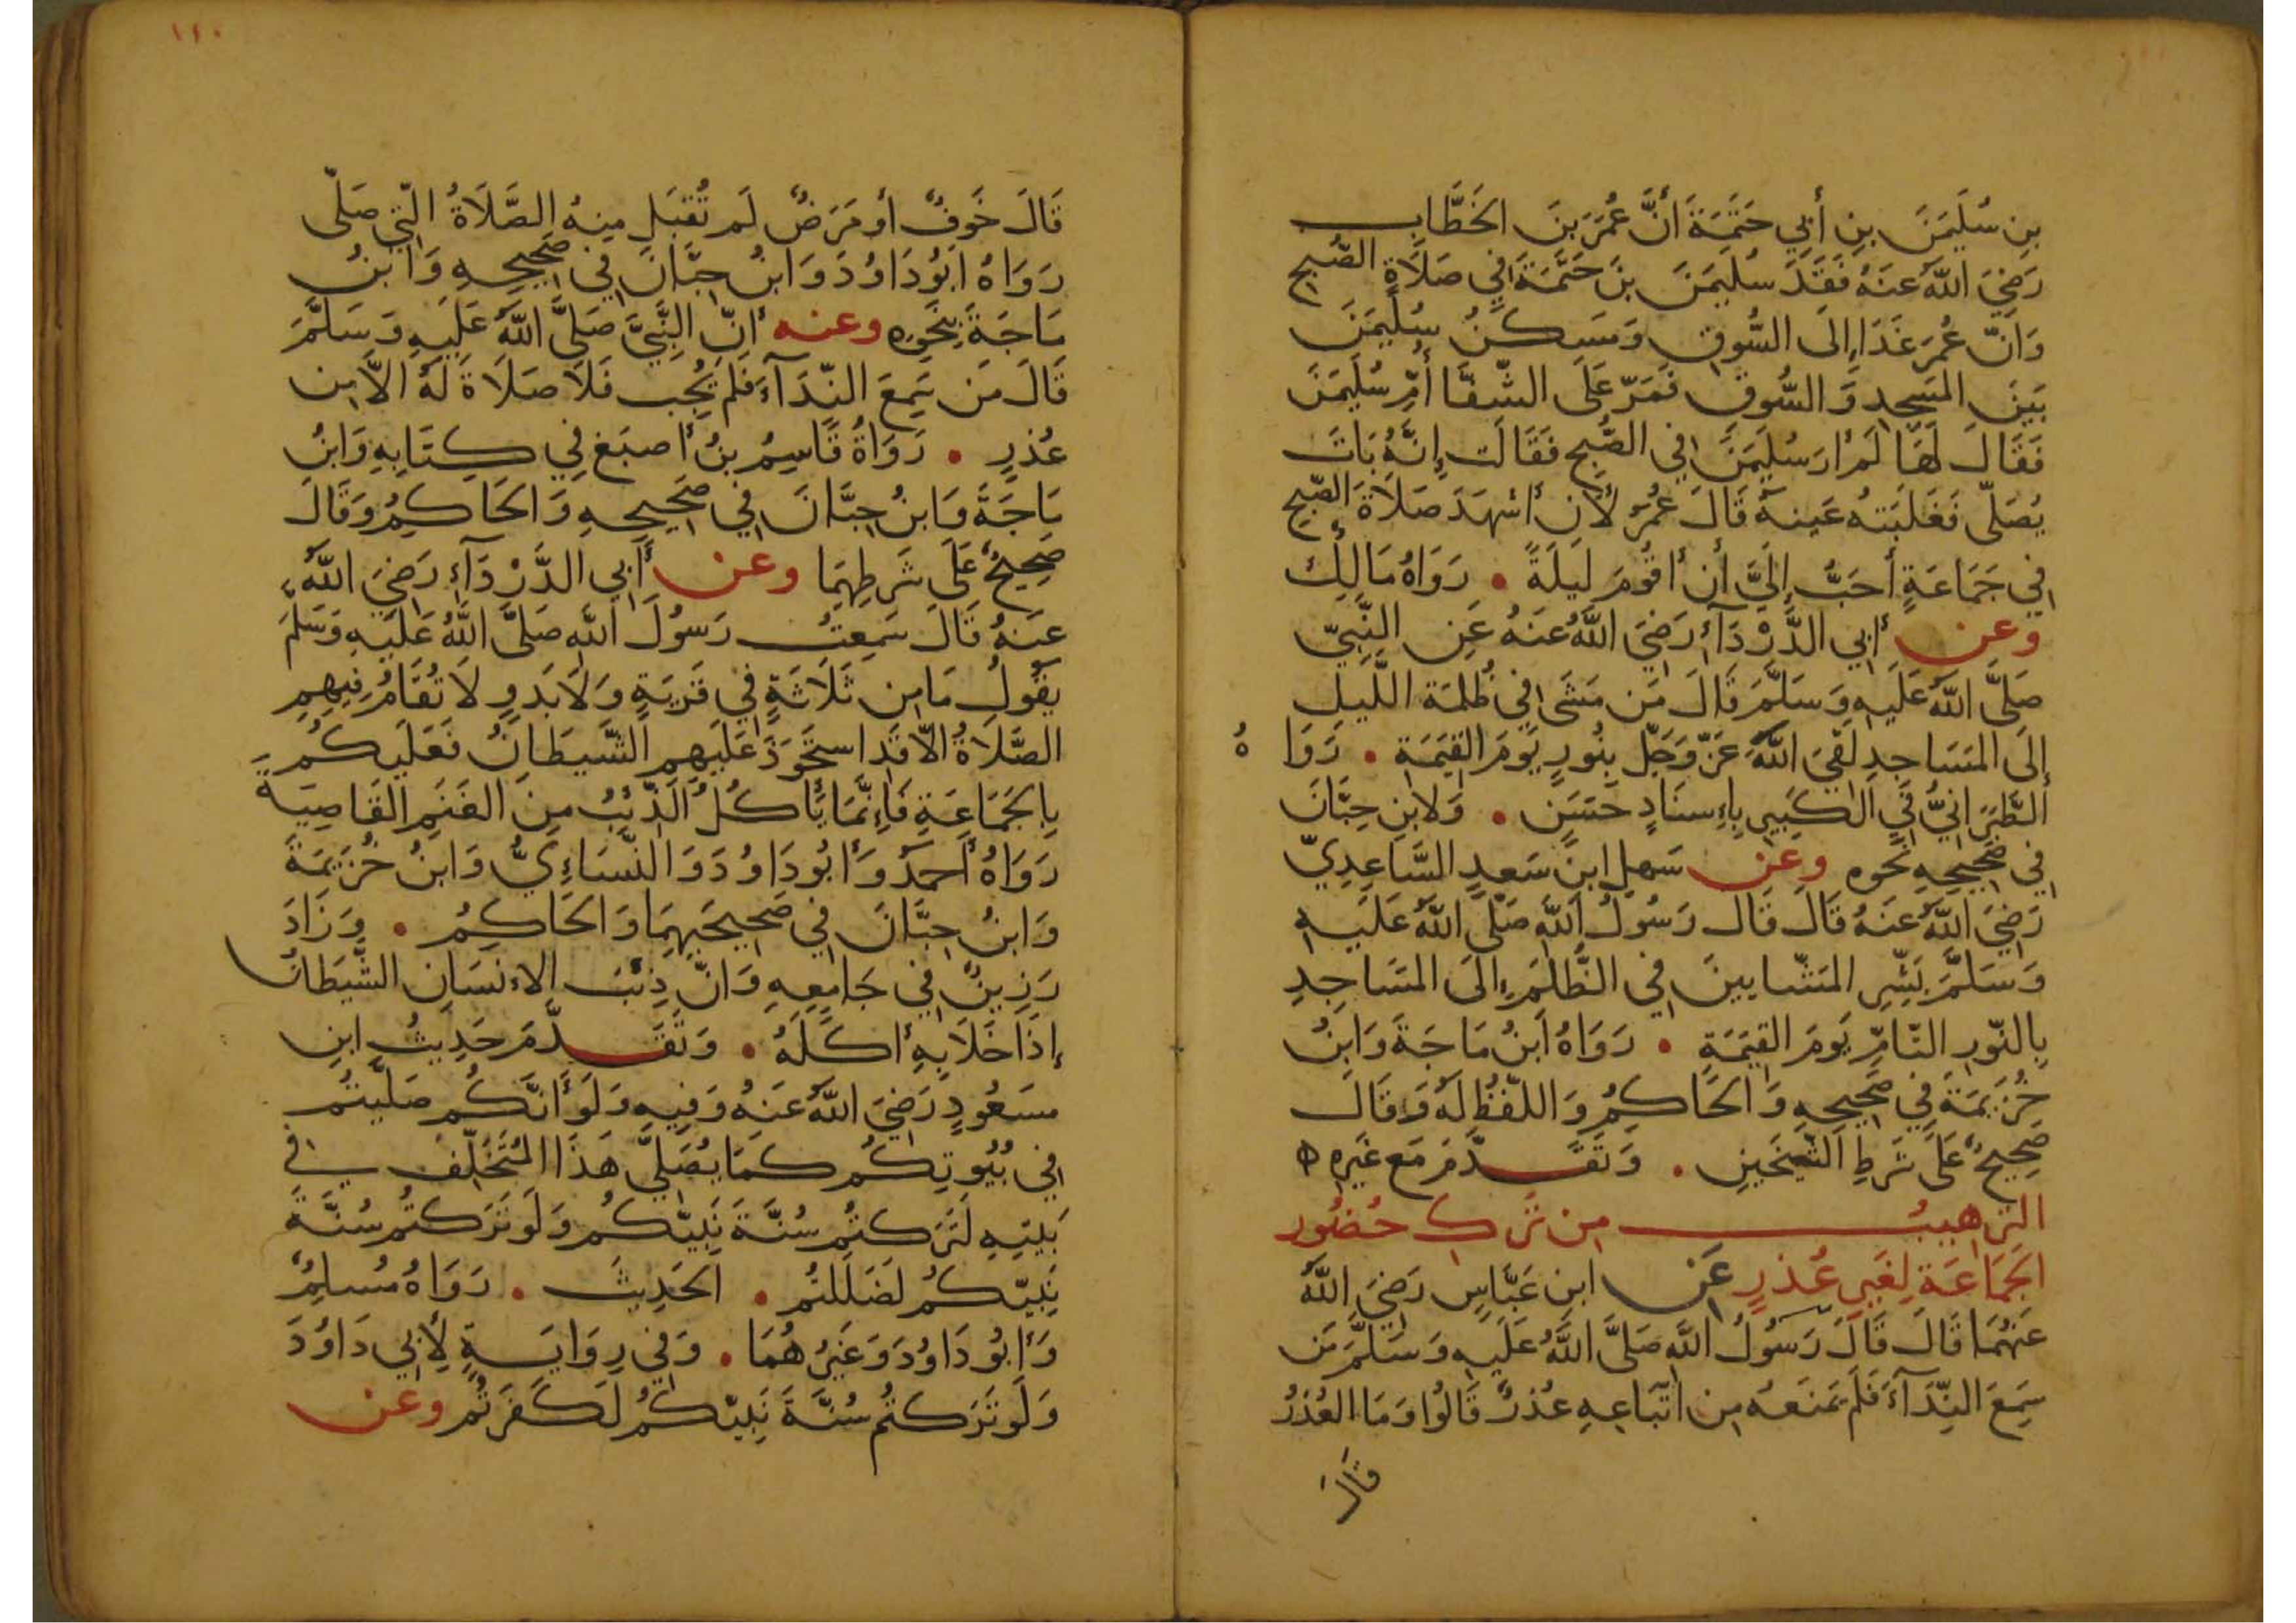 بِن سُلَيمَنَ بنِ أَبِي حَثَمَةَ أَنَّ عُمَرَ بنَ الخَطَّابِ
رَضِيَ اللَّهُ عَنهُ فَقَدَ سُلَيمَنَ بنَ حَثَمَةَ فِي صَلَاةِ الصُّبحِ
وَانّ عُمَرَ غَدَا إِلَى السُّوقِ وَمَسكنُ سُلَيمَنَ
بَينَ المَسجِدِ وَالسُّوقِ فَمَرّ عَلَى الشّفَّا أُمِّ سُلَيمَنَ
فَقَالَ لَهَا لَم أرَ سُلَيمَنَ فِي الصُّبحِ فَقَالَت إِنَّهُ بَاتَ
يُصَلّي فَغَلَبَتهُ عَينهُ قَالَ عُمَرُ لأن أشهَدَ صَلَاةَ الصّبحِ
فِي جَمَاعَةٍ أَحَبُّ إِلَيَّ أن أقُومَ لَيلَةً . رَوَاهُ مَالِكٌ
وعن أبِي الدَّرْدَآءِ رَضِيَ اللَّهُ عَنهُ عَنِ النَّبِيّ
صَلَّى اللَّهُ عَلَيهِ وَسَلَّمَ قَالَ مَن مَشَى فِي ظُلمَة اللَّيلِ
إلَى المَسَاجِدِ لَقِيَ اللَّهَ عَزّ وَجَلّ بِنُورٍ يَومَ القِيَمَةِ . رَوَاهُ
الطَّبَرَانِيُّ فِي الكَبِيرِ بِإِسنَادٍ حَسَنٍ . وَلابنِ حِبَّانَ
فِي صَحِيحِهِ نَحوه وعن سَهلِ ابنِ سَعدٍ السَّاعِدِيّ
رَضِيَ اللَّهُ عَنهُ قَالَ قَال رَسُولُ اللَّهِ صَلَّى اللَّهُ عَلَيهِ
وَسَلَّمَ بَشِّرِ المَشّايينَ فِي الظُّلَمِ إلَى المَسَاجِدِ
بِالنّورِ التّامِّ يَومَ القِيَمَةِ . رَوَاهُ ابنُ مَاجَةَ وَابنُ
خُزَيمَةَ فِي صَحِيحِهِ وَالحَاكِمُ وَاللّفظُ لَهُ وَقَالَ
صَحِيحٌ عَلَى شَرطِ الشّيخَينِ . وَتَقَدّمَ مَع غَيرِهِ ه
الترهِيبُ مِن تَركِ حُضُورِ
الجَمَاعَة لِغَيرِ عُذرٍ عَن ابن عَبَّاسٍ رَضِيَ اللَّهُ
عَنهُمَا قَالَ قَالَ رَسُولُ اللَّهِ صَلَّى اللَّهُ عَلَيهِ وَسَلَّمَ مَن
سَمِعَ النِّدَآءَ فَلَم يَمنَعهُ مِن اتّبَاعِهِ عُذرٌ قَالُوا وَمَا العُذرُ
قَالَ
١١٠
قَالَ خَوفٌ أو مَرَضٌ لَم تُقبَل مِنهُ الصَّلَاةُ الَّتِي صَلّى
رَوَاهُ ابُو دَاوُدَ وَابنُ حِبَّانَ فِي صَحِيحِهِ وَابنُ
مَاجَةَ بِنَحوِه وعنه أنّ النَّبِيَّ صَلَّى اللَّهُ عَلَيهِ وَسَلَّمَ
قَالَ مَن سَمِعَ النّدَآءَ فَلَم يُجِب فَلَا صَلَاةَ لَهُ الاَّ مِن
عُذرٍ . رَوَاهُ قَاسِمُ بنُ أصبَغ فِي كِتَابِهِ وَابنُ
مَاجَةَ وَابنُ حِبَّانَ فِي صَحِيحِهِ وَالحَاكِمُ وَقَالَ
صَحِيحٌ عَلَى شَرطِهِمَا وعن أَبِي الدَّرْدَآءِ رَضِيَ اللَّهُ
عَنهُ قَالَ سَمِعتُ رَسُولَ اللَّهِ صَلَّى اللَّهُ عَلَيهِ وَسَلَّمَ
يَقُولُ مَا مِن ثَلَاثَةٍ فِي قَريَةٍ وَلَا بَدوٍ لَا تُقَامُ فِيهِمِ
الصَّلَاةُ الاّ قَد استَحوَذَ عَلَيهِم الشَّيطَانُ فَعَلَيكُم
بِالجَمَاعَةِ فَإنَّمَا يَأكُلُ الذِّئبُ مِنَ الغَنَمِ القَاصِيَةَ
رَوَاهُ أحمَدُ وَأبُو دَاوُدَ وَالنَّسَاءِيُّ وَابنُ خُزَيمَةَ
وَابنُ حِبَّانَ فِي صَحِيحَيهِمَا وَالحَاكِمُ . وَزَادَ
رَزِينٌ فِي جَامِعِهِ وَانّ ذِئبَ الاءنسَانِ الشَّيطَانُ
إذَا خَلَا بِهِ أكَلَهُ . وَتَقَدّمَ حَدِيثُ ابنِ
مسَعُودٍ رَضِيَ اللَّهُ عَنهُ وَفِيهِ وَلَو أنَّكُم صَلَّيتُم
فِي بُيُوتِكُم كَمَا يُصَلِّي هَذَا المُتَخَلِّف فِي
بَيتِهِ لَتَرَكتُم سُنَّةَ نَبِيّكُم وَلَو تَرَكتُم سُنَّةَ
نَبِيّكُم لَضَلَلتُم . الحَدِيثَ . رَوَاهُ مُسلِمٌ
وَأبُو دَاوُدَ وَغَيرُهُمَا . وَفِي رِوَايَةٍ لِأبِي دَاوُدَ
وَلَو تَرَكتُم سُنَّةَ نَبِيّكُم لَكَفَرتُم وعن